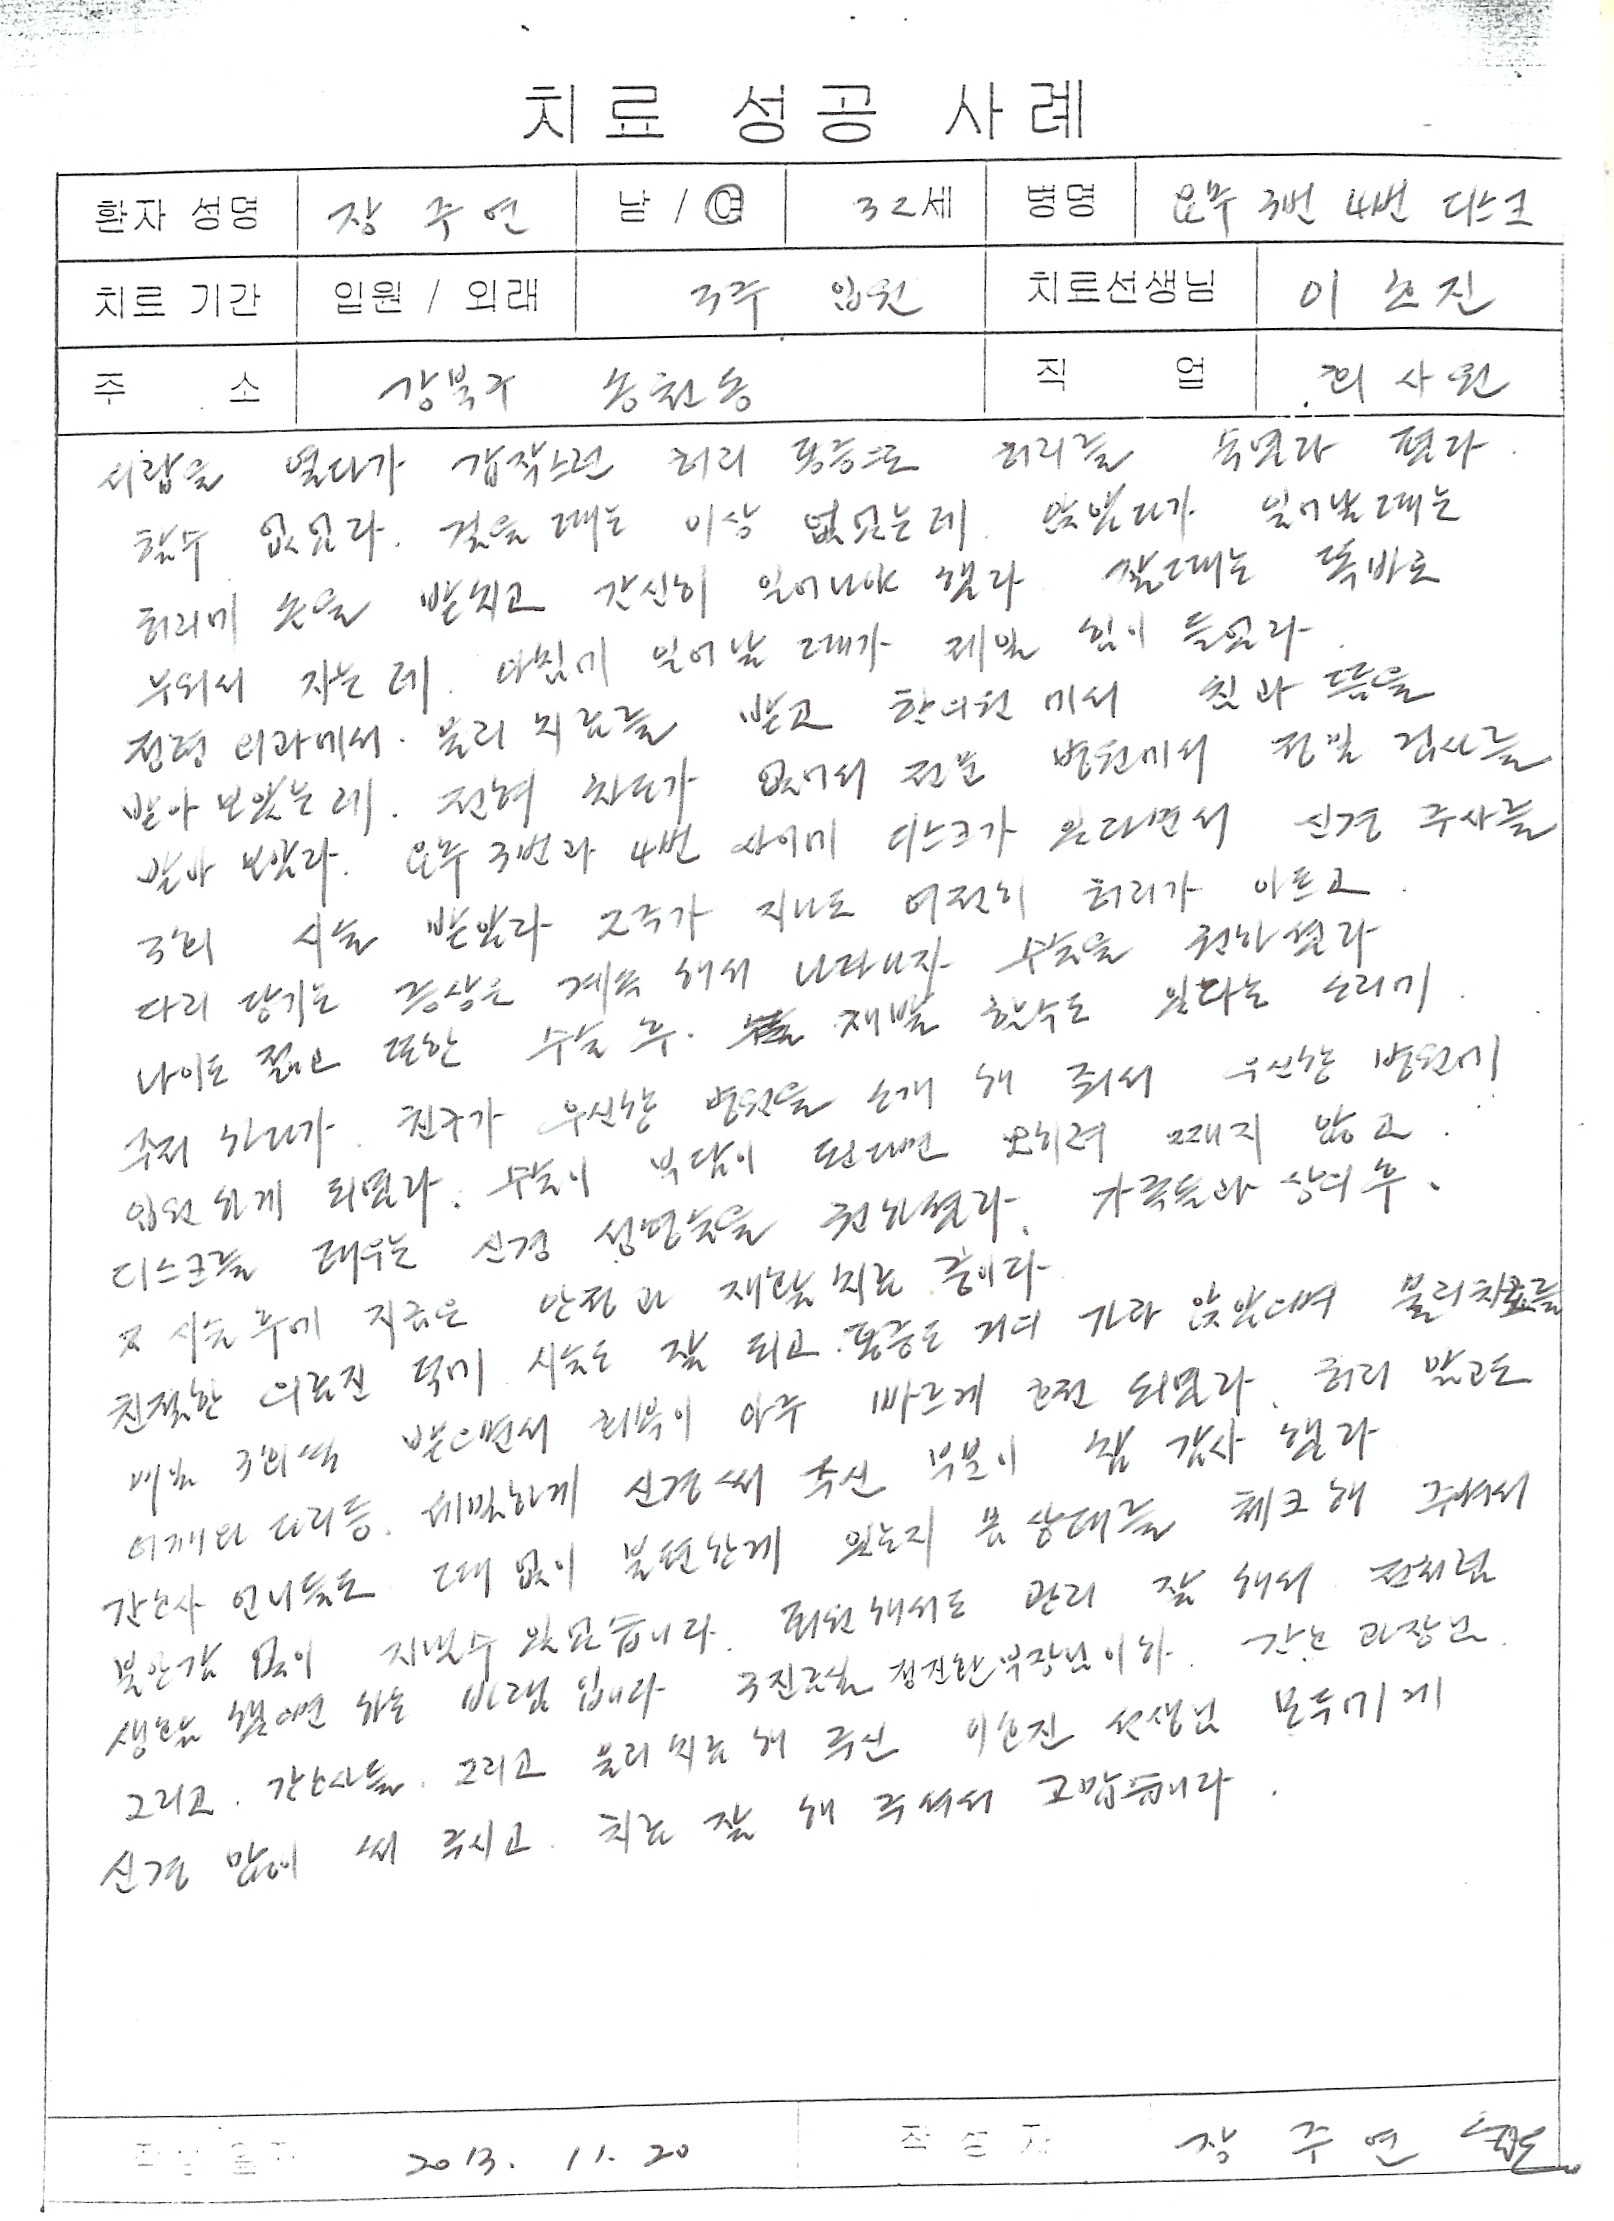 치료 성공 사례
환자 성명 장주연 남 / 여 32세 병명 요추 3번 4번 디스크
치료 기간 입원 / 외래 3주 입원 치료선생님 이호진
주 소 강북구 송천동 직 업 회사원
서랍을 열다가 갑작스런 허리 통증으로 허리를 숙였다 폈다.
할수 없었다. 걸을 때는 이상 없었는데. 앉았다가 일어날때는
허리에 손을 받치고 간신히 일어나야 했다 잘때는 똑바로
누워서 자는데. 아침에 일어날 때가 제일 힘이 들었다.
정형 외과에서. 물리 치료를 받고 한의원에서 침과 뜸을
받아 보았는데. 전혀 차도가 없어서 전문 병원에서 정밀 검사를
받아 보았다. 요추 3번과 4번 사이에 디스크가 있다면서 신경 주사를
3회 시술 받았다 2주가 지나도 여전히 허리가 아프고.
다리 당기는 증상은 계속 해서 나타나자 수술을 권하셨다
나이도 젊고 또한 수술 후. 재발 할수도 있다는 소리에.
주저 하다가. 친구가 우신향 병원을 소개 해 줘서 우신향 병원에
입원 하게 되었다. 수술이 부담이 된다면 오히려 째지 않고.
디스크를 태우는 신경 성형술을 권하셨다. 가족들과 상의 후.
시술 후에 지금은 안정과 재활 치료 중이다
친절한 의료진 덕에 시술도 잘 되고. 통증도 거의 가라 앉았으며 물리치료를
매일 3회씩 받으면서 회복이 아주 빠르게 호전 되었다. 허리 말고도
어깨와 다리등. 세밀하게 신경 써 주신 부분이 참 감사 했다
간호사 언니들도 때 없이 불편한게 있는지 몸 상태를 체크 해 주셔서
불안감 없이 지낼수 있었습니다. 퇴원해서도 관리 잘 해서 전처럼
생활 했으면 하는 바램 입니다 주진료실 정진환 부장님 이하. 간호 과장님.
그리고. 간호사들. 그리고 물리 치료 해 주신 이호진 선생님 모두에게
신경 많이 써 주시고. 치료 잘 해 주셔서 고맙습니다.
작성일자 2013. 11. 20 작성자 장주연